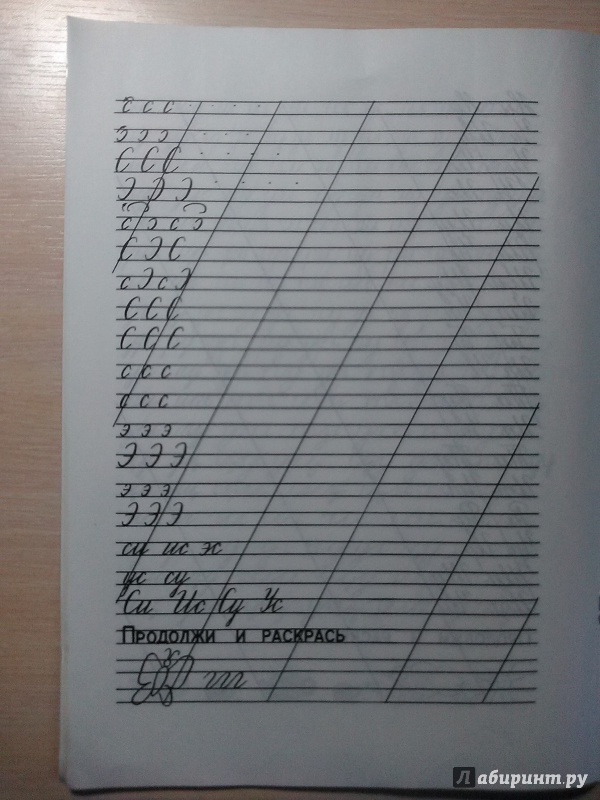 с с с
э э э
С С С
Э Э Э
с э с э
С Э С
с Э с Э
С С С
С С С
с с с
с с с
э э э
Э Э Э
э э э
Э Э Э
си ис эс
ус су
Си Ис Су Ус
Продолжи и раскрась
Лабиринт.ру